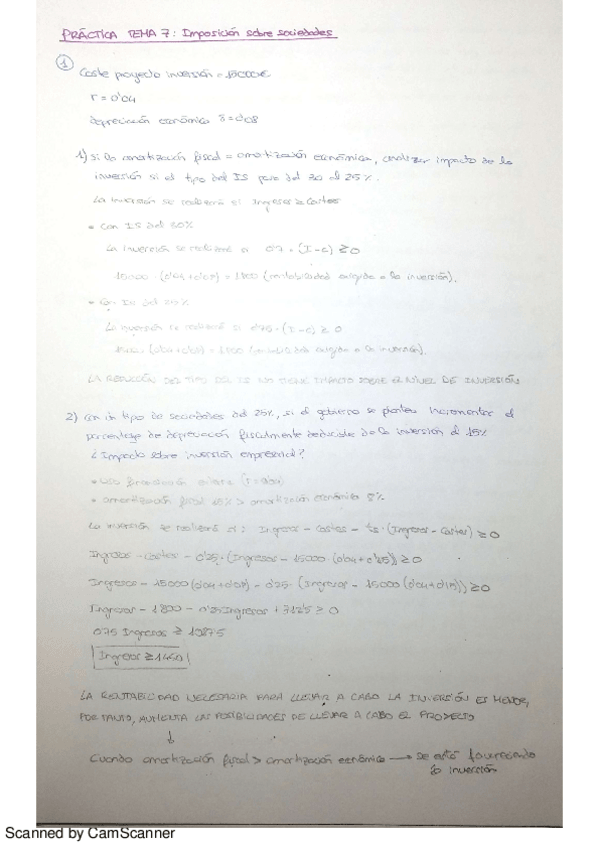 PRÁCTICA TEMA 7: Imposición sobre sociedades
1
Coste proyecto inversión =
r = 0'04
depreciación económica δ = 0'08
1) Si la amortización fiscal = amortización económica, analizar impacto de la
inversión si el tipo del IS pasa del 30 al 25%.
La inversión se realizará si Ingresos ≥ Costes
• Con IS del 30%
La inversión se realizará si 0'7 · (I-C) ≥ 0
15000 · (0'04+0'08) = 1800 (rentabilidad exigida a la inversión).
• Con IS del 25%
La inversión se realizará si 0'75 · (I-C) ≥ 0
15000 · (0'04+0'08) = 1800 (rentabilidad exigida a la inversión).
LA REDUCCIÓN DEL TIPO DEL IS NO TIENE IMPACTO SOBRE EL NIVEL DE INVERSIÓN
2) Con un tipo de sociedades del 25%, si el gobierno se plantea incrementar el
porcentaje de depreciación fiscalmente deducible de la inversión al 15%
¿Impacto sobre inversión empresarial?
• financiación
• amortización fiscal > amortización económica 8%
La inversión se realizará si: Ingresos - Costes - ts · (Ingresos - Costes) ≥ 0
Ingresos - Costes - 0'25 · (Ingresos - 15000 · (0'04 + 0'15)) ≥ 0
Ingresos - 15000 (0'04+0'08) - 0'25 · (Ingresos - 15000 (0'04+0'15)) ≥ 0
Ingresos - 1800 - 0'25 Ingresos + 712'5 ≥ 0
0'75 Ingresos ≥ 1087'5
Ingresos ≥ 1450
LA RENTABILIDAD NECESARIA PARA LLEVAR A CABO LA INVERSIÓN ES MENOR,
POR TANTO, AUMENTA LAS POSIBILIDADES DE LLEVAR A CABO EL PROYECTO
↓
Cuando amortización fiscal > amortización económica → se está favoreciendo
la inversión
Scanned by CamScanner